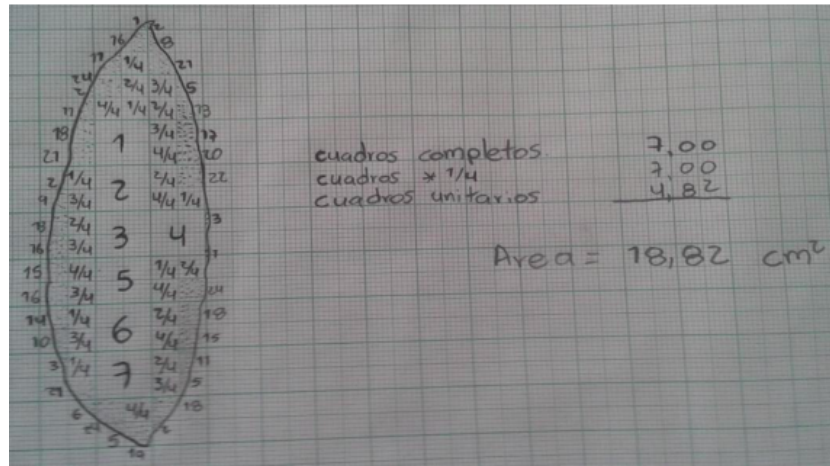 1 2
16 8
17 1/4 21
24 2/4 3/4 5
2
11 4/4 1/4 2/4 13
18 1 3/4 17
21 4/4 20
2 1/4 2 2/4 22
9 3/4 4/4 1/4
18 2/4 3 4 3
16 3/4 1
15 4/4 5 1/4 2/4
16 3/4 4/4 24
14 1/4 6 2/4 18
10 3/4 4/4 15
3 1/4 7 2/4 11
21 3/4 5
6 4/4 18
24 2
5
19
cuadros completos 7,00
cuadros * 1/4 7,00
cuadros unitarios 4,82
Area = 18,82 cm²